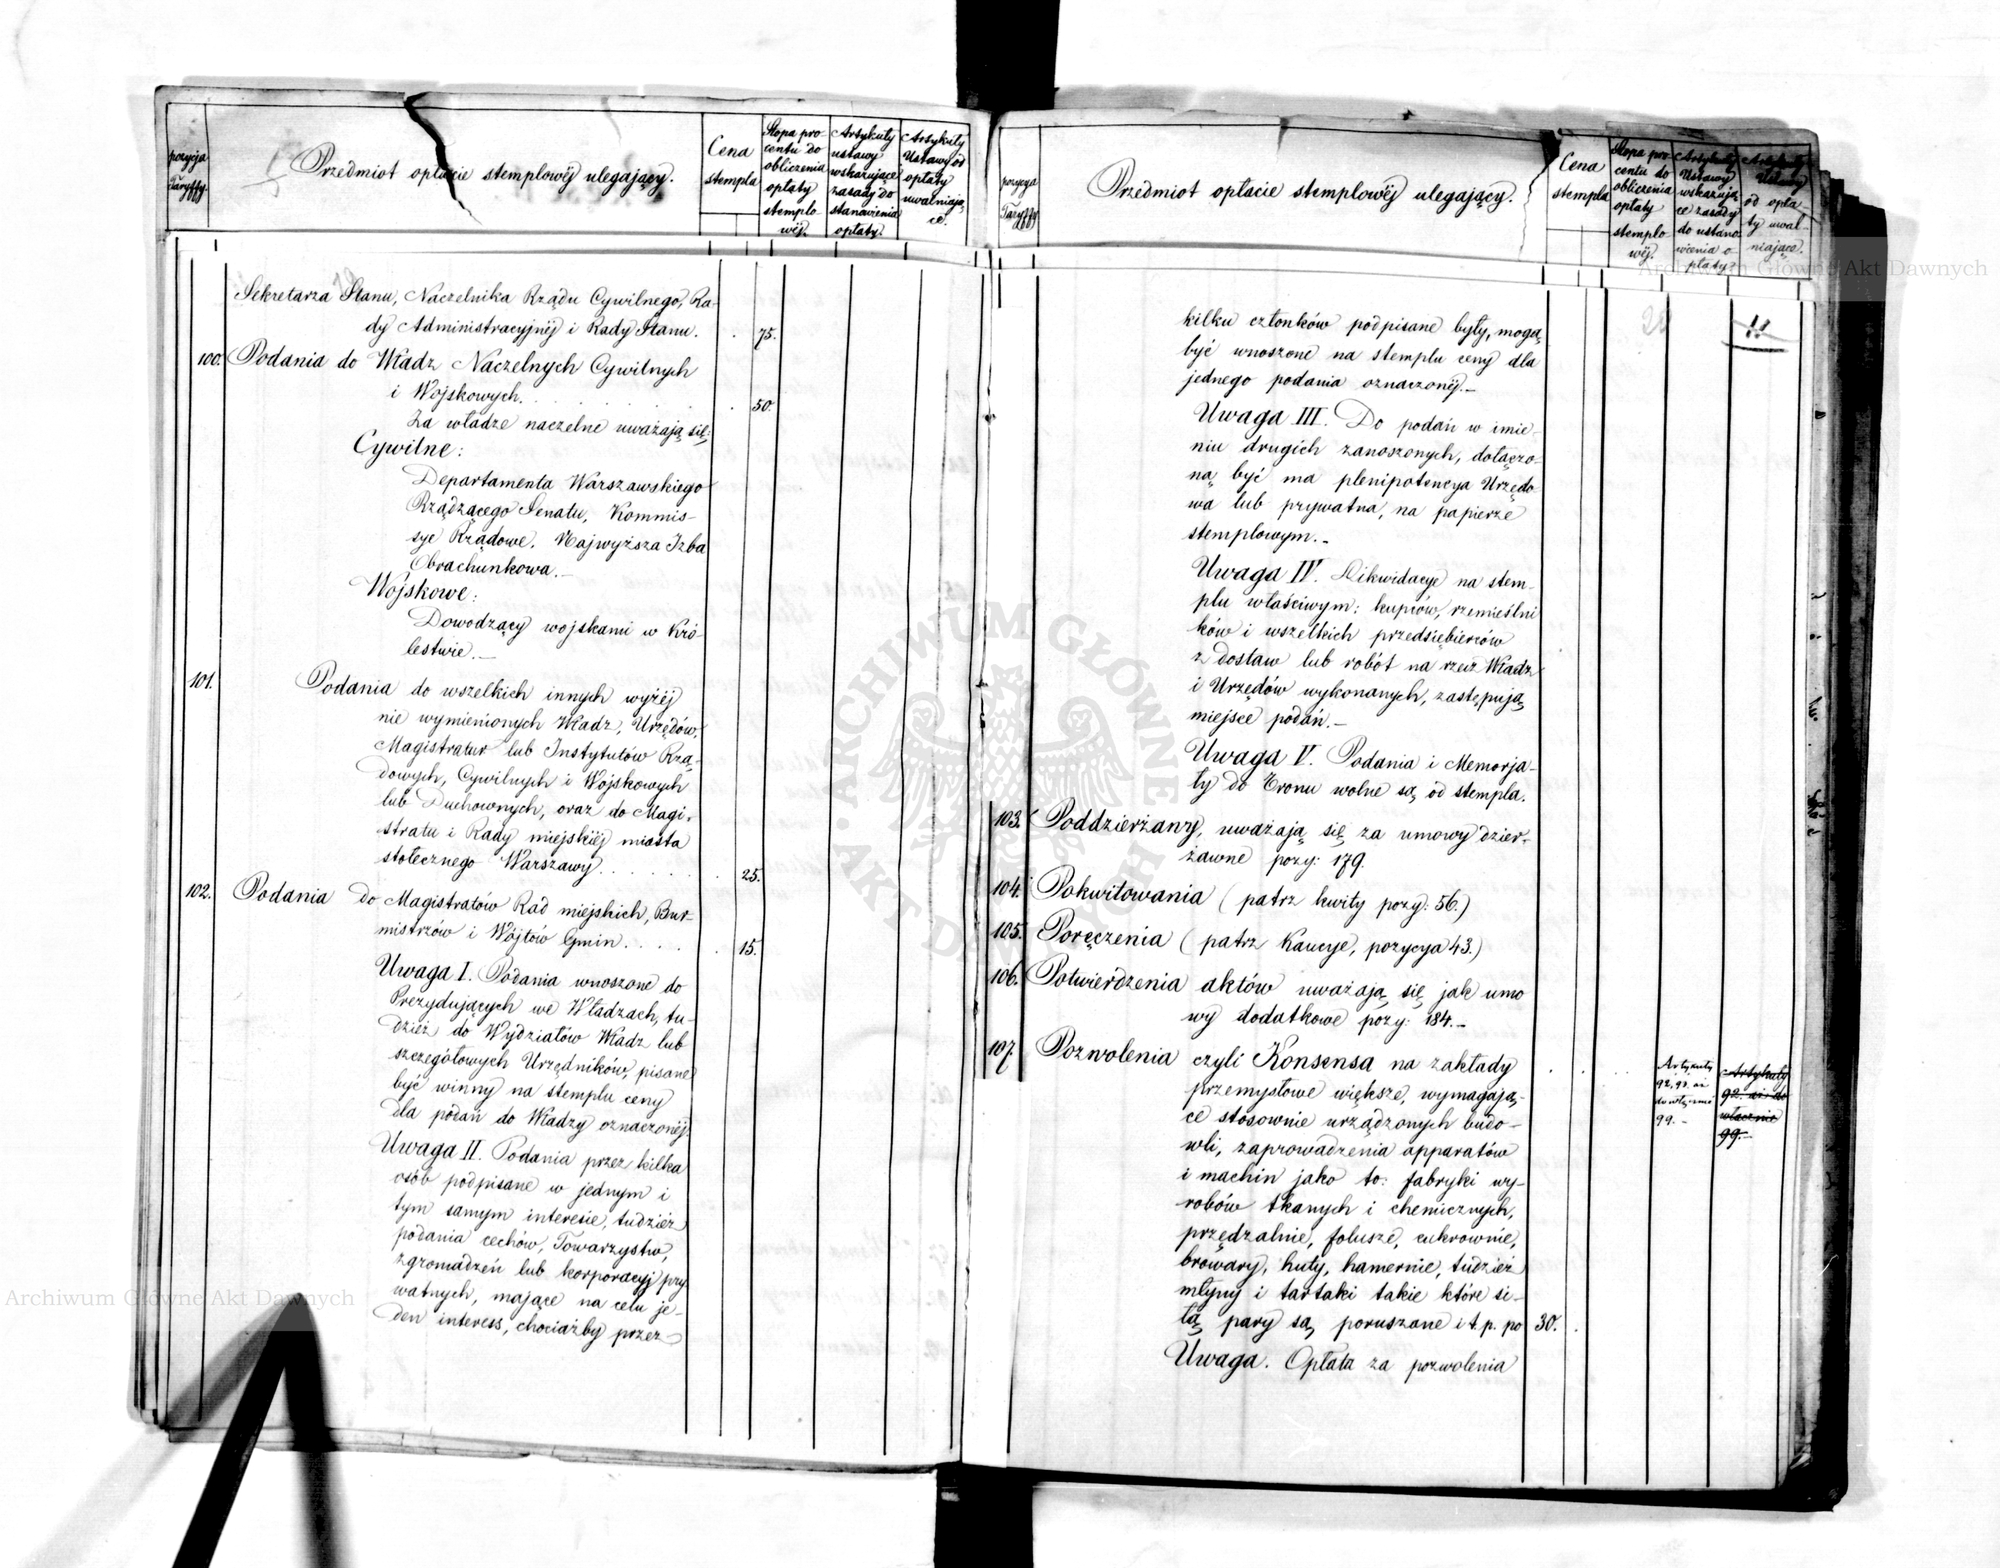 pozycja
Taryffy.
Przedmiot opłacie stemplowéj ulegający.
Cena
stempla
Stopa pro-
centu do
obliczenia
opłaty
stemplo-
wéj.
Artykuły
ustawy
wskazujące
zasady do
stanowienia
opłaty.
Artykuły
Ustawy od
opłaty
uwalniają-
ce.
Sekretarza Stanu, Naczelnika Rządu Cywilnego, Ra-
dy Administracyjnéj i Rady Stanu. 75.
100. Podania do Władz Naczelnych Cywilnych
i Wojskowych. . . . . . . 50.
Za władze naczelne uważają się:
Cywilne:
Departamenta Warszawskiego
Rządzącego Senatu, Kommis-
sye Rządowe, Najwyższa Izba
Obrachunkowa.—
Wojskowe:
Dowodzący wojskami w Kró-
lestwie.—
101. Podania do wszelkich innych wyżéj
nie wymienionych Władz, Urzędów,
Magistratur lub Instytutów Rzą-
dowych, Cywilnych i Wojskowych
lub Duchownych, oraz do Magi-
stratu i Rady miejskiéj miasta
stołecznego Warszawy. . . . . . 25.
102. Podania do Magistratów Rad miejskich, Bur-
mistrzów i Wójtów Gmin. . . . 15.
Uwaga I. Podania wnoszone do
Prezydujących we Władzach, tu-
dzież do Wydziałów Władz lub
szczegółowych Urzędników, pisane
być winny na stemplu ceny
dla podań do Władzy oznaczonéj.
Uwaga II. Podania przez kilka
osób podpisane w jednym i
tym samym interesie, tudzież
podania cechów, Towarzystw,
zgromadzeń lub korporacyj pry
watnych, mające na celu je-
den interess, chociażby przez
pozycya
Taryffy
Przedmiot opłacie stemplowéj ulegający.
Cena
stempla
Stopa pro-
centu do
obliczenia
opłaty
stemplo-
wéj.
Artykuły
Ustawy
wskazują-
ce zasady
do ustano-
wienia o-
płaty.
Artykuły
Ustawy
od opła-
ty uwal-
niające.
kilku członków podpisane były, mogą
być wnoszone na stemplu ceny dla
jednego podania oznaczonéj.—
Uwaga III. Do podań w imie-
niu drugich zanoszonych, dołączo-
ną być ma plenipotencya Urzędo
wa lub prywatna, na papierze
stemplowym.—
Uwaga IV. Likwidacye na stem-
plu właściwym: kupców, rzemieślni
ków i wszelkich przedsiębierców
z dostaw lub robót na rzecz Władz
i Urzędów wykonanych, zastępują
miejsce podań.—
Uwaga V. Podania i Memorja-
ły do Tronu wolne są od stempla.
103. Poddzierżawy, uważają się za umowy dzier-
żawne pozy: 179.
104. Pokwitowania (patrz kwity pozy: 56.)
105. Poręczenia (patrz Kaucye, pozycya 43.)
106. Potwierdzenia aktów uważają się jak umo
wy dodatkowe pozy: 184.—
107. Pozwolenia czyli Konsensa na zakłady
przemysłowe większe, wymagają-
ce stosownie urządzonych budo-
wli, zaprowadzenia apparatów
i machin jako to: fabryki wy-
robów tkanych i chemicznych,
przędzalnie, folusze, cukrownie,
browary, huty, hamernie, tudzież
młyny i tartaki takie które si-
łą pary są poruszane i t. p. po 30.
Uwaga. Opłata za pozwolenia
Artykuły
92, 93. aż
do włącznie
99.—
Artykuły
92. aż do
włącznie
99.—
Archiwum Główne Akt Dawnych
ARCHIWUM GŁÓWNE
AKT DAWNYCH
Archiwum Główne Akt Dawnych